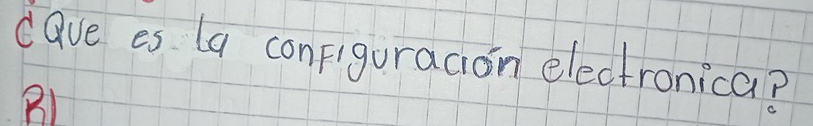 ¿Que es la configuración electronica?
R)